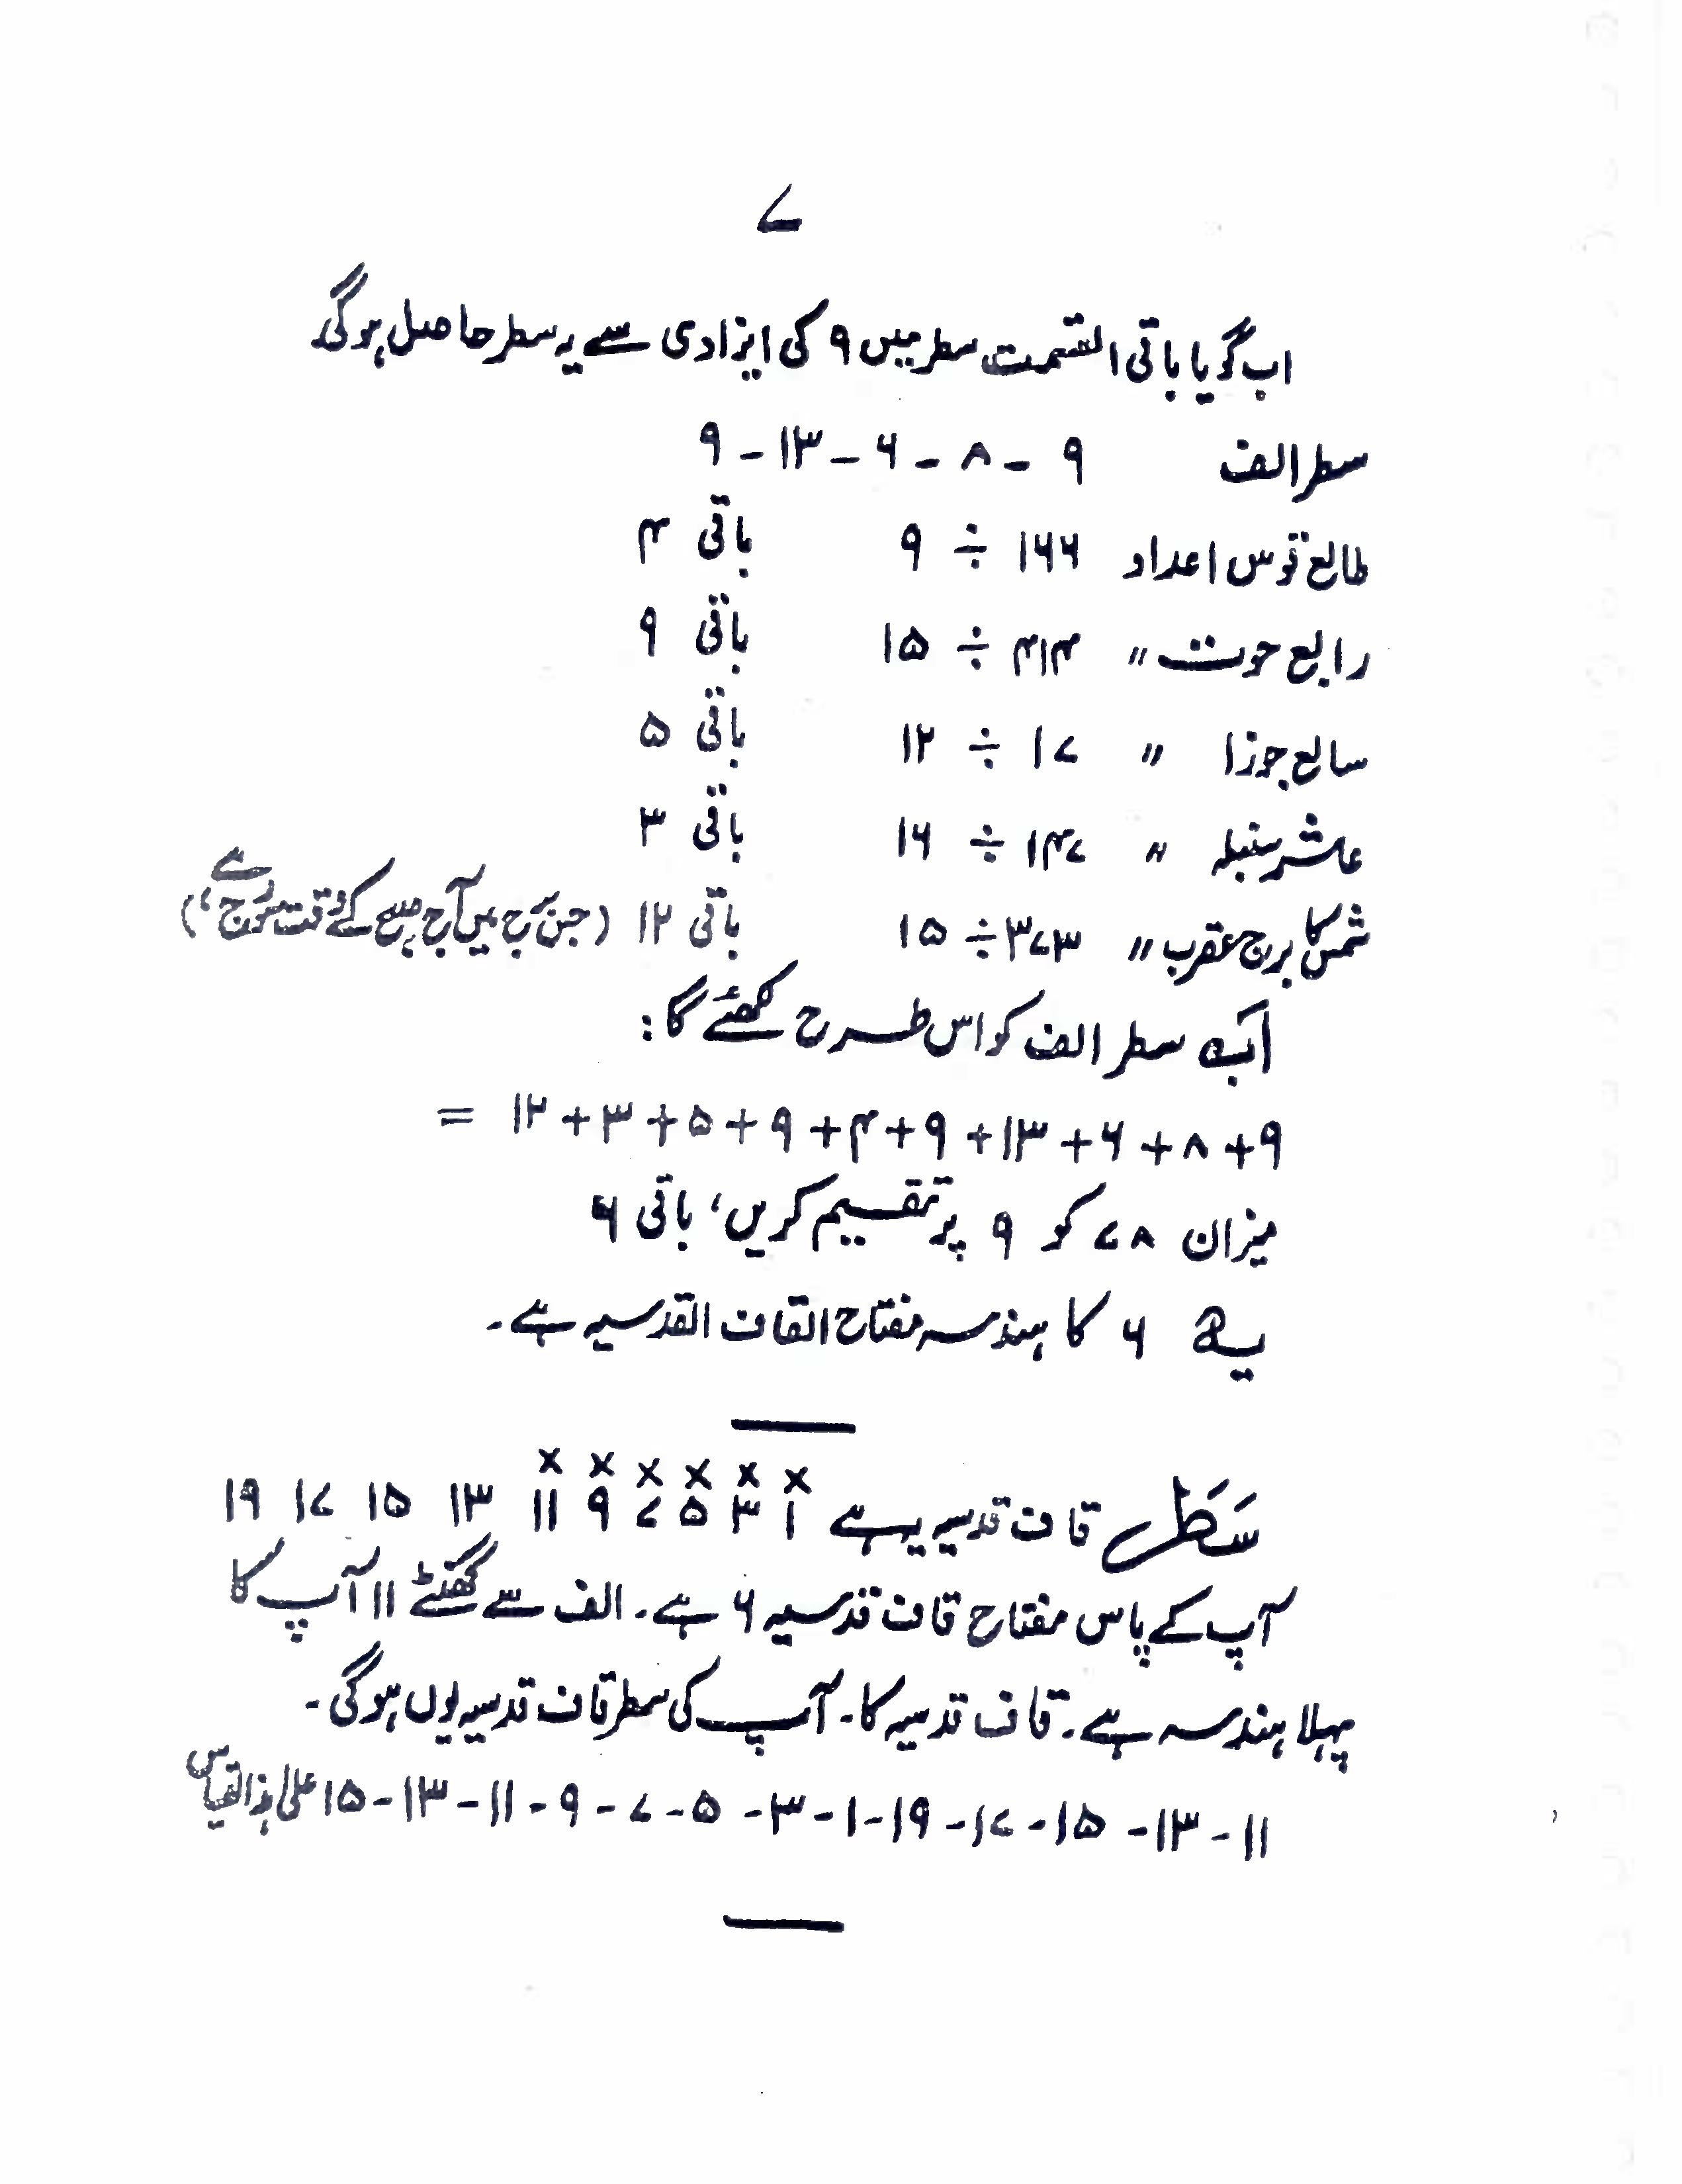 ۷
اب گویا باقی القسمت سطر میں ۹ کی ایزادی سے یہ سطر حاصل ہوگی
سطر الف ۹ - ۸ - ۶ - ۱۳ - ۹
طالع قوس اعداد ۱۶۶ ÷ ۹ باقی ۴
رابع حوت " ۴۱۴ ÷ ۱۵ باقی ۹
سابع جوزا " ۱۷ ÷ ۱۲ باقی ۵
عاشر سنبلہ " ۱۴۷ ÷ ۱۶ باقی ۳
شمس کا برج عقرب " ۳۷۳ ÷ ۱۵ باقی ۱۲ (جس برج میں آج صبح کے وقت سورج ہے)
اب سطر الف کو اس طرح لکھئے گا:
۹+۸+۶+۱۳+۹+۴+۹+۵+۳+۱۲ =
میزان ۷۸ کو ۹ پر تقسیم کریں، باقی ۶
یہ ۶ کا ہندسہ مفتاح القاف القدسیہ ہے۔
× × × × × ×
سطر قاف قدسیہ یہ ہے ۱ ۳ ۵ ۷ ۹ ۱۱ ۱۳ ۱۵ ۱۷ ۱۹
آپ کے پاس مفتاح قاف قدسیہ ۶ ہے۔ الف سے گھنٹے ۱۱ آپ کا
پہلا ہندسہ ہے۔ قاف قدسیہ کا۔ آپ کی سطر قاف قدسیہ یوں ہوگی۔
۱۱ - ۱۳ - ۱۵ - ۱۷ - ۱۹ - ۱ - ۳ - ۵ - ۷ - ۹ - ۱۱ - ۱۳ - ۱۵ علیٰ ہذا القیاس